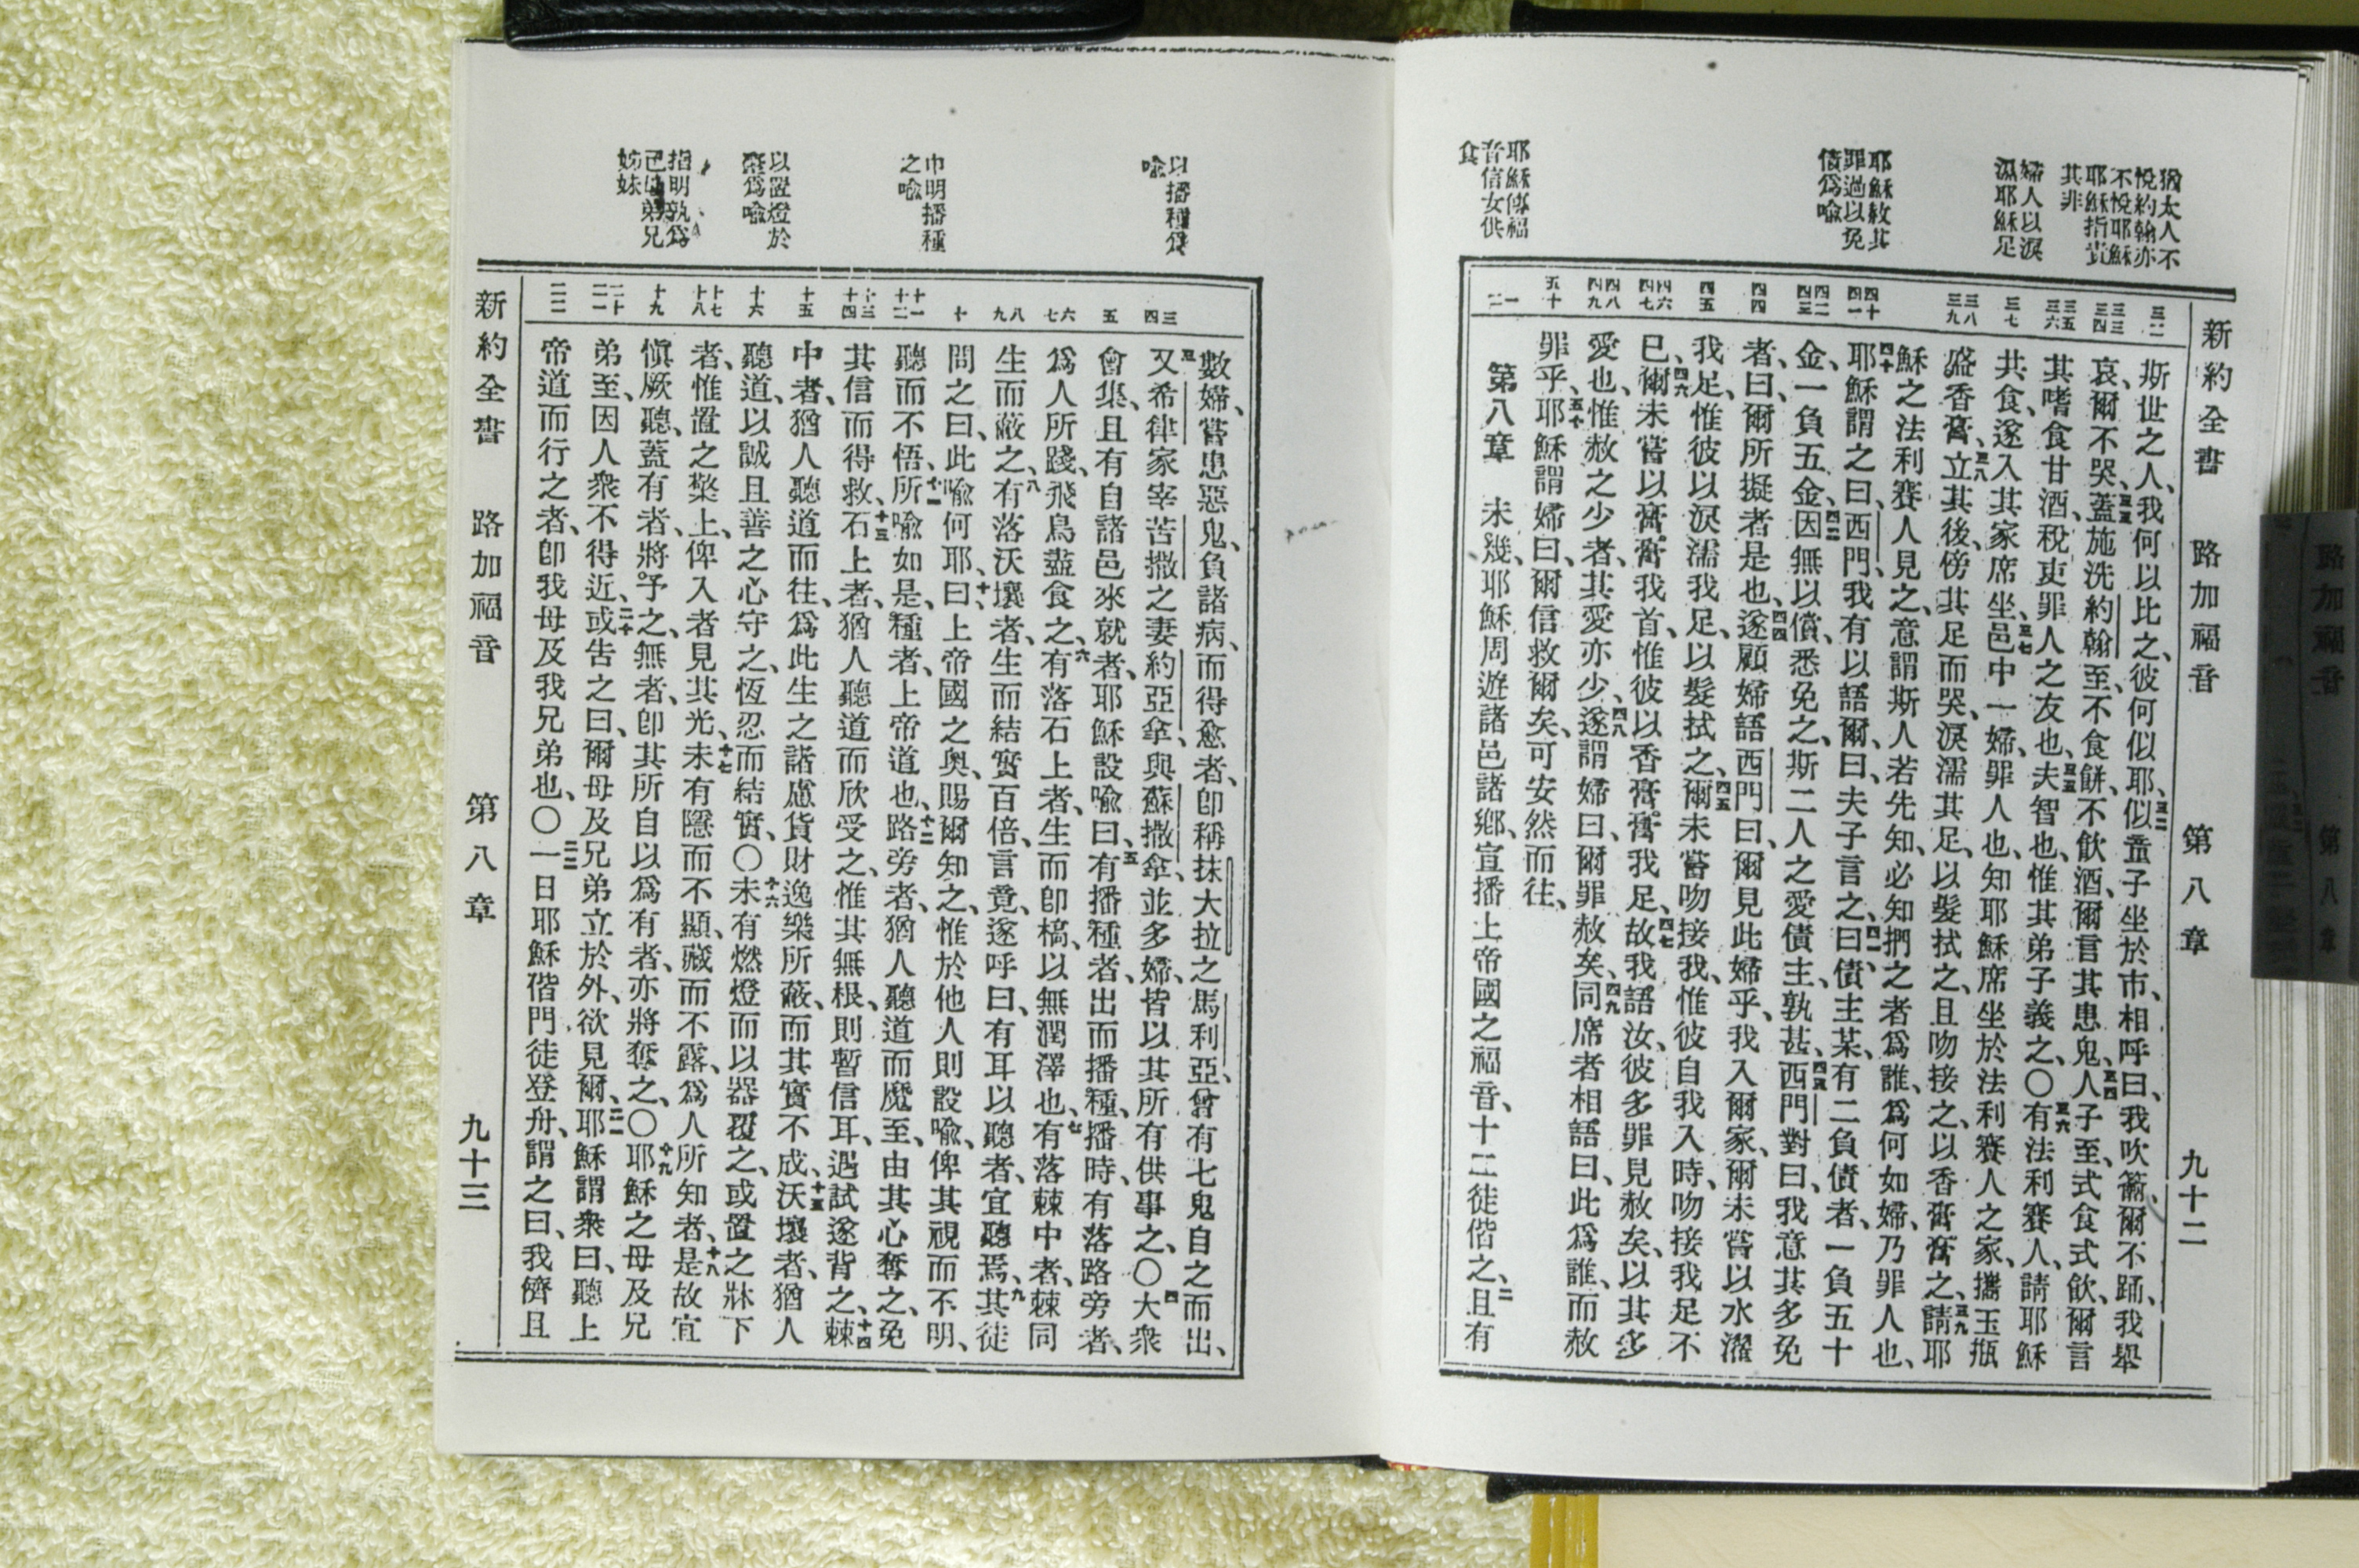 新約全書 路加福音 第八章 九十二
猶太人不
悅約翰亦
不悅耶穌
耶穌指責
其非
婦人以淚
濕耶穌足
耶穌赦其
罪過以免
債爲喩
耶穌傳福
音信女供
食
三二
三三
三四
三五
三六
三七
三八
三九
四十
四一
四二
四三
四四
四五
四六
四七
四八
四九
五十
一
二
斯世之人、我何以比之、彼何似耶、三二似童子坐於市、相呼曰、我吹籥、爾不踊、我舉
哀、爾不哭、三三蓋施洗約翰至、不食餅、不飲酒、爾言其患鬼、三四人子至、式食式飲、爾言
其嗜食甘酒、稅吏罪人之友也、三五夫智也、惟其弟子義之、〇三六有法利賽人、請耶穌
共食、遂入其家席坐、三七邑中一婦、罪人也、知耶穌席坐於法利賽人之家、攜玉瓶
盛香膏、三八立其後、傍其足而哭、淚濡其足、以髮拭之、且吻接之、以香膏膏之、三九請耶
穌之法利賽人見之、意謂斯人若先知、必知捫之者爲誰、爲何如婦、乃罪人也、
四十耶穌謂之曰、西門、我有以語爾、曰、夫子言之、四一曰、債主某、有二負債者、一負五十
金、一負五金、四二因無以償、悉免之、斯二人之愛債主、孰甚、四三西門對曰、我意其多免
者、曰、爾所擬者是也、四四遂顧婦語西門曰、爾見此婦乎、我入爾家、爾未嘗以水濯
我足、惟彼以淚濡我足、以髮拭之、四五爾未嘗吻接我、惟彼自我入時、吻接我足不
已、四六爾未嘗以膏膏我首、惟彼以香膏膏我足、四七故我語汝、彼多罪見赦矣、以其多
愛也、惟赦之少者、其愛亦少、四八遂謂婦曰、爾罪赦矣、四九同席者相語曰、此爲誰、而赦
罪乎、五十耶穌謂婦曰、爾信救爾矣、可安然而往、
第八章 未幾、耶穌周遊諸邑諸鄉、宣播上帝國之福音、十二徒偕之、二且有
以播種爲
喩
申明播種
之喩
以置燈於
檠爲喩
指明孰爲
己母弟兄
姊妹
三
四
五
六
七
八
九
十
十一
十二
十三
十四
十五
十六
十七
十八
十九
二十
二一
二二
數婦、嘗患惡鬼、負諸病、而得愈者、卽稱抹大拉之馬利亞、曾有七鬼自之而出、
三又希律家宰苦撒之妻約亞拿、與蘇撒拿、並多婦、皆以其所有供事之、〇四大衆
會集、且有自諸邑來就者、耶穌設喩曰、五有播種者、出而播種、播時、有落路旁者、
爲人所踐、飛鳥盡食之、六有落石上者、生而卽槁、以無潤澤也、七有落棘中者、棘同
生而蔽之、八有落沃壤者、生而結實百倍、言竟、遂呼曰、有耳以聽者、宜聽焉、九其徒
問之曰、此喩何耶、十曰、上帝國之奧、賜爾知之、惟於他人則設喩、俾其視而不明、
聽而不悟、十一所喩如是、種者、上帝道也、十二路旁者、猶人聽道而魔至、由其心奪之、免
其信而得救、十三石上者、猶人聽道而欣受之、惟其無根、則暫信耳、遇試遂背之、十四棘
中者、猶人聽道而往、爲此生之諸慮貨財逸樂所蔽、而其實不成、十五沃壤者、猶人
聽道、以誠且善之心守之、恆忍而結實、〇十六未有燃燈而以器覆之、或置之牀下
者、惟置之檠上、俾入者見其光、十七未有隱而不顯、藏而不露、爲人所知者、十八是故宜
愼厥聽、蓋有者、將予之、無者、卽其所自以爲有者、亦將奪之、〇十九耶穌之母及兄
弟至、因人衆不得近、二十或吿之曰、爾母及兄弟立於外、欲見爾、二一耶穌謂衆曰、聽上
帝道而行之者、卽我母及我兄弟也、〇二二一日耶穌偕門徒登舟、謂之曰、我儕且
新約全書 路加福音 第八章 九十三